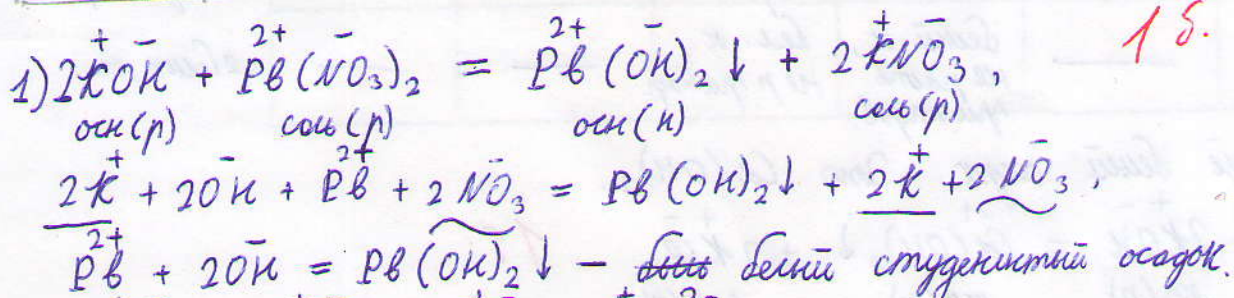 1) 2K⁺OH⁻ + Pb²⁺(NO₃)⁻₂ = Pb²⁺(OH)⁻₂↓ + 2K⁺NO₃⁻, 1 б.
осн(р) соль(р) осн(н) соль(р)
2K⁺ + 2OH⁻ + Pb²⁺ + 2NO₃⁻ = Pb(OH)₂↓ + 2K⁺ + 2NO₃⁻,
Pb²⁺ + 2OH⁻ = Pb(OH)₂↓ – белый студенистый осадок.